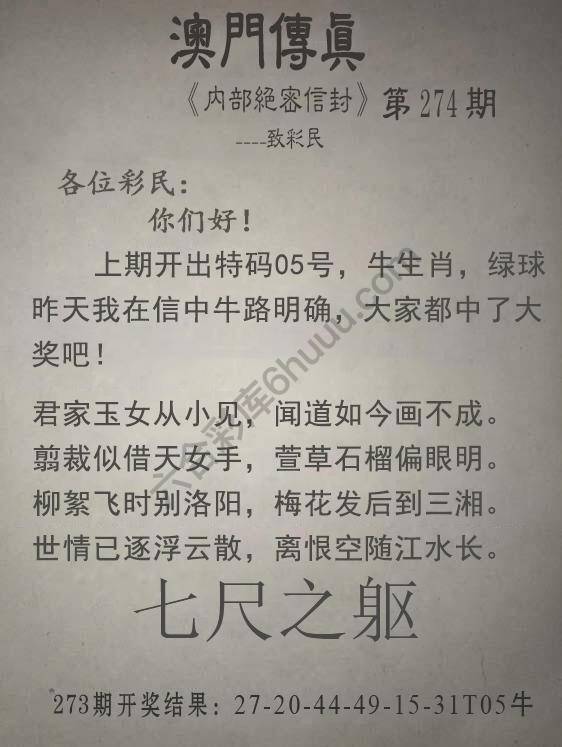 澳門傳眞
《内部絕密信封》第274期
----致彩民
各位彩民：
你们好！
上期开出特码05号，牛生肖，绿球
昨天我在信中牛路明确，大家都中了大
奖吧！
君家玉女从小见，闻道如今画不成。
翦裁似借天女手，萱草石榴偏眼明。
柳絮飞时别洛阳，梅花发后到三湘。
世情已逐浮云散，离恨空随江水长。
七尺之躯
273期开奖结果：27-20-44-49-15-31T05牛
六合彩库6huuu.com